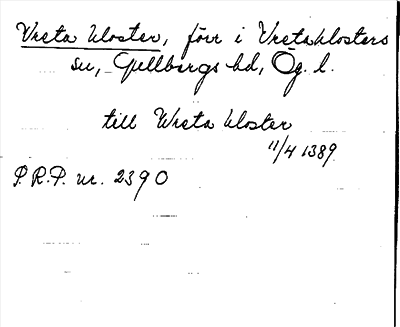 Vreta kloster, förr i Vretaklosters
sn, Gullbergs hd, Ög. l.
till Wreta kloster
11/4 1389
P.R.P. nr. 2390